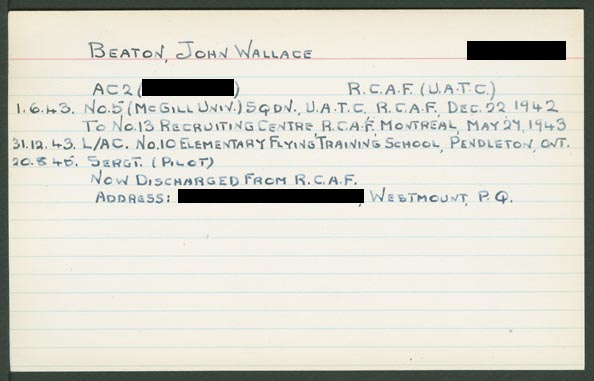 BEATON, JOHN WALLACE
AC2 ( ) R.C.A.F. (U.A.T.C.)
1.6.43. No.5 (McGILL UNIV.) SQDN., U.A.T.C. R.C.A.F. DEC. 22 1942
TO No.13 RECRUITING CENTRE, R.C.A.F, MONTREAL, MAY 27, 1943
31.12.43. L/AC. No.10 ELEMENTARY FLYING TRAINING SCHOOL, PENDLETON, ONT.
20.8.45. SERGT. (PILOT)
NOW DISCHARGED FROM R.C.A.F.
ADDRESS: , WESTMOUNT, P.Q.